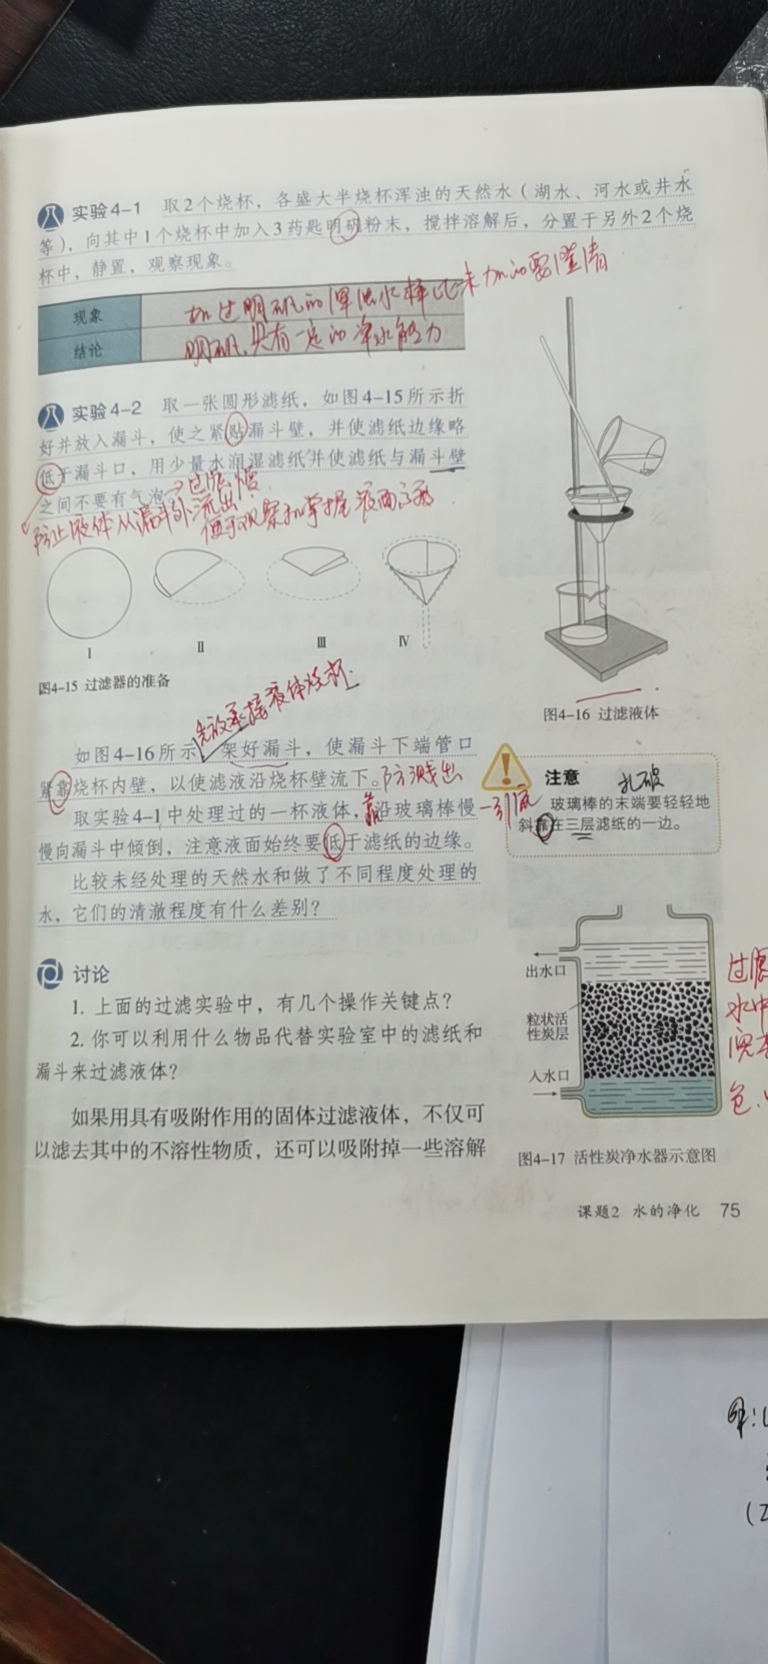 实验4-1 取2个烧杯，各盛大半烧杯浑浊的天然水（湖水、河水或井水
等），向其中1个烧杯中加入3药匙明矾粉末，搅拌溶解后，分置于另外2个烧
杯中，静置，观察现象。
现象 加过明矾的浑浊水样比未加的要澄清
结论 明矾具有一定的净水能力
实验4-2 取一张圆形滤纸，如图4-15所示折
好并放入漏斗，使之紧贴漏斗壁，并使滤纸边缘略
低于漏斗口，用少量水润湿滤纸并使滤纸与漏斗壁
之间不要有气泡。过滤慢
防止液体从漏斗外流出 便于观察和掌握液面高
I
II
III
IV
图4-15 过滤器的准备
图4-16 过滤液体
先放承接液体烧杯
如图4-16所示，架好漏斗，使漏斗下端管口
紧靠烧杯内壁，以使滤液沿烧杯壁流下。防溅出
取实验4-1中处理过的一杯液体，靠沿玻璃棒慢 引流
慢向漏斗中倾倒，注意液面始终要低于滤纸的边缘。
比较未经处理的天然水和做了不同程度处理的
水，它们的清澈程度有什么差别？
注意 扎破
玻璃棒的末端要轻轻地
斜靠在三层滤纸的一边。
讨论
1. 上面的过滤实验中，有几个操作关键点？
2. 你可以利用什么物品代替实验室中的滤纸和
漏斗来过滤液体？
如果用具有吸附作用的固体过滤液体，不仅可
以滤去其中的不溶性物质，还可以吸附掉一些溶解
出水口
粒状活
性炭层
入水口
过滤
水中
色
图4-17 活性炭净水器示意图
课题2 水的净化 75